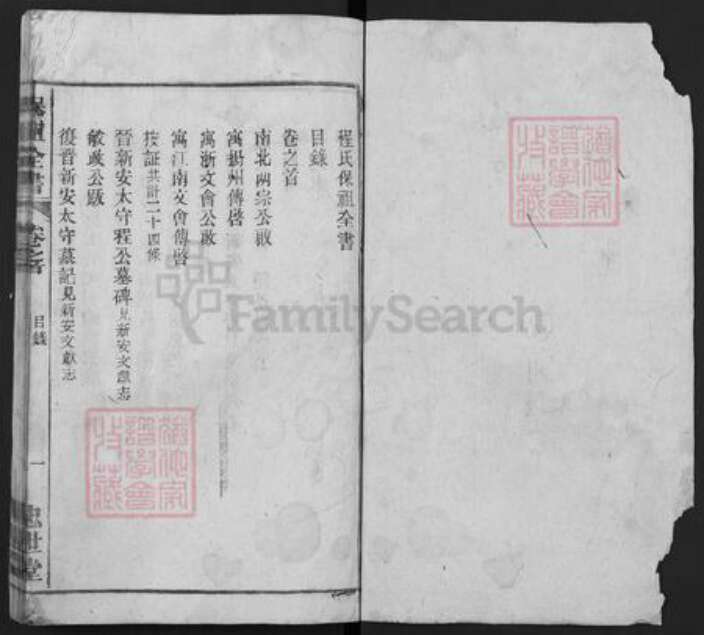 程氏保祖全書
目錄
卷之首
南北兩宗公啟
寓揚州傳啓
寓浙文會公啟
寓江南文會傳啓
按証共計二十四條
晉新安太守程公墓碑見新安文獻志
敏政公跋
復晋新安太守墓記見新安文獻志
保祖全書
卷之首
目錄
一
世堂
FamilySearch